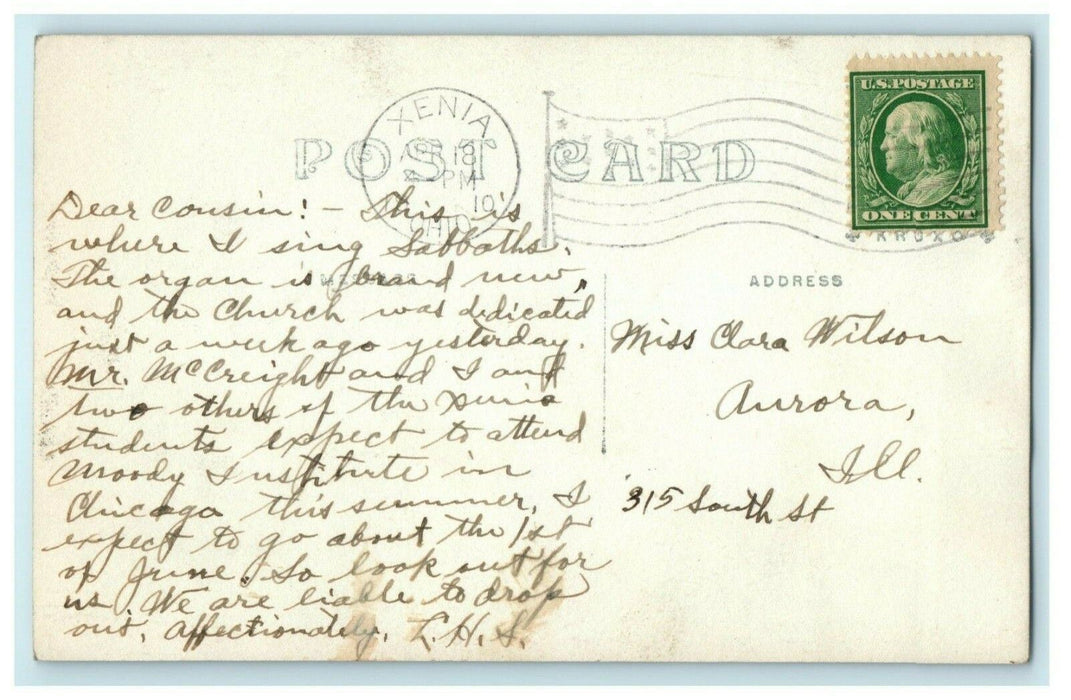 XENIA
APR 18
PM
10
OHIO
POST CARD
U.S. POSTAGE
ONE CENT
KRUXO
MESSAGE
ADDRESS
Dear Cousin! - This is
where I sing Sabbaths.
The organ is brand new,
and the Church was dedicated
just a week ago yesterday.
Mr. McCreight and I and
two others of the Xenia
students expect to attend
Moody Institute in
Chicago this summer, I
expect to go about the 1st
of June. So look out for
us. We are liable to drop
out. Affectionately, L.H.S.
Miss Clara Wilson
Aurora,
Ill.
315 South St